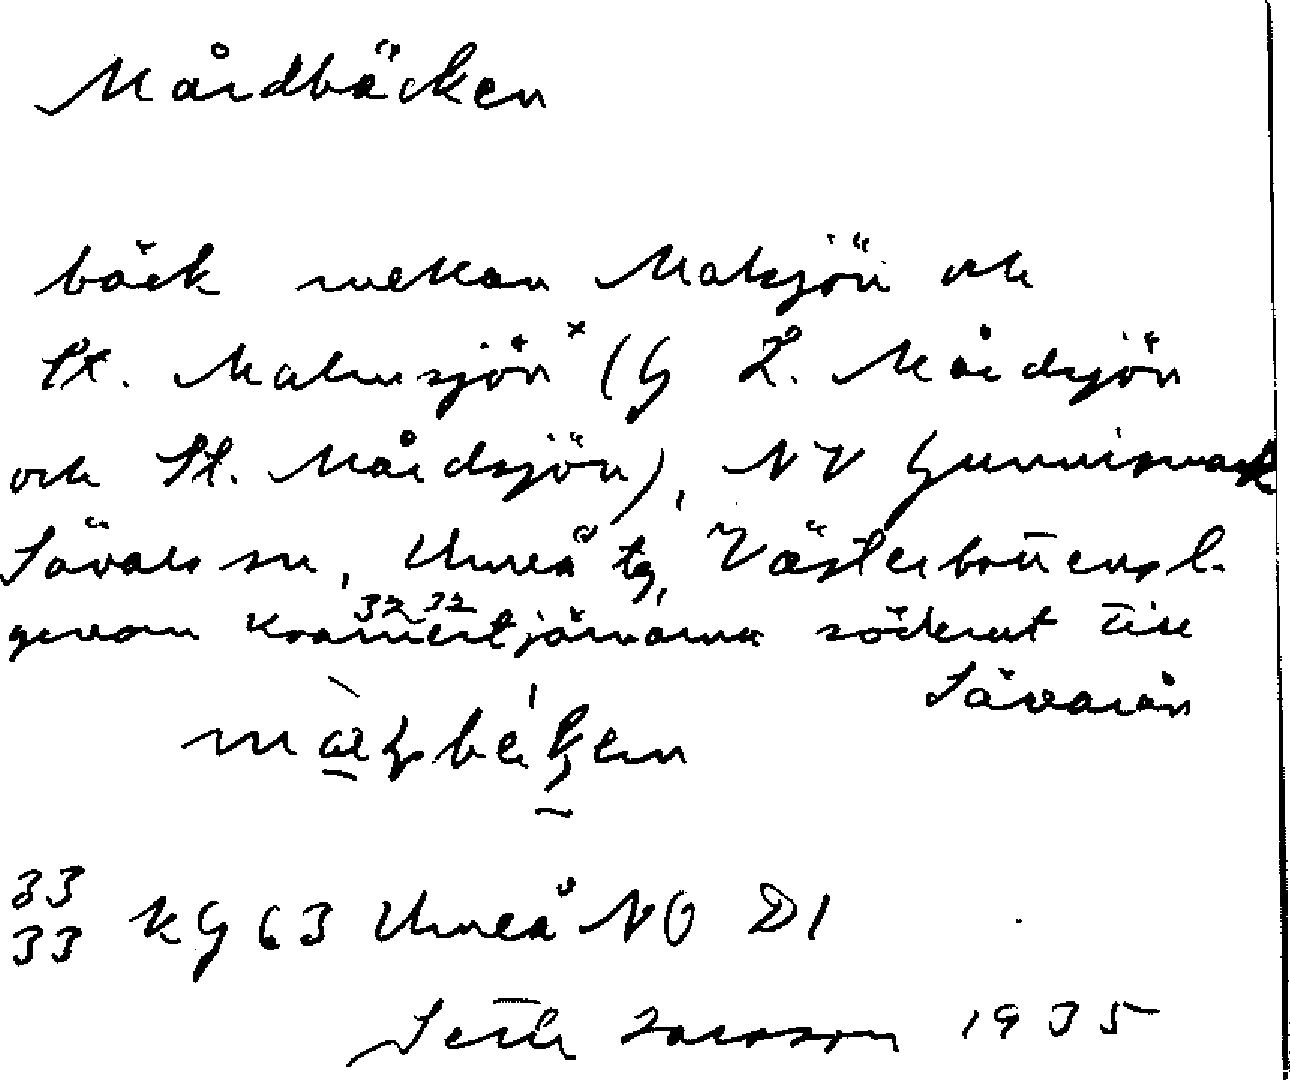 Mårdbäcken
bäck mellan Malsjön och
St. Malmsjön x (G L. Mårdsjön
och St. Mårdsjön), NV Gunnismark
Sävars sn, Umeå tg, Västerbottens l.
genom söderut till
32 32
Sävarån
33 KG 63 Umeå NO D1
33
Seth Larsson 1935